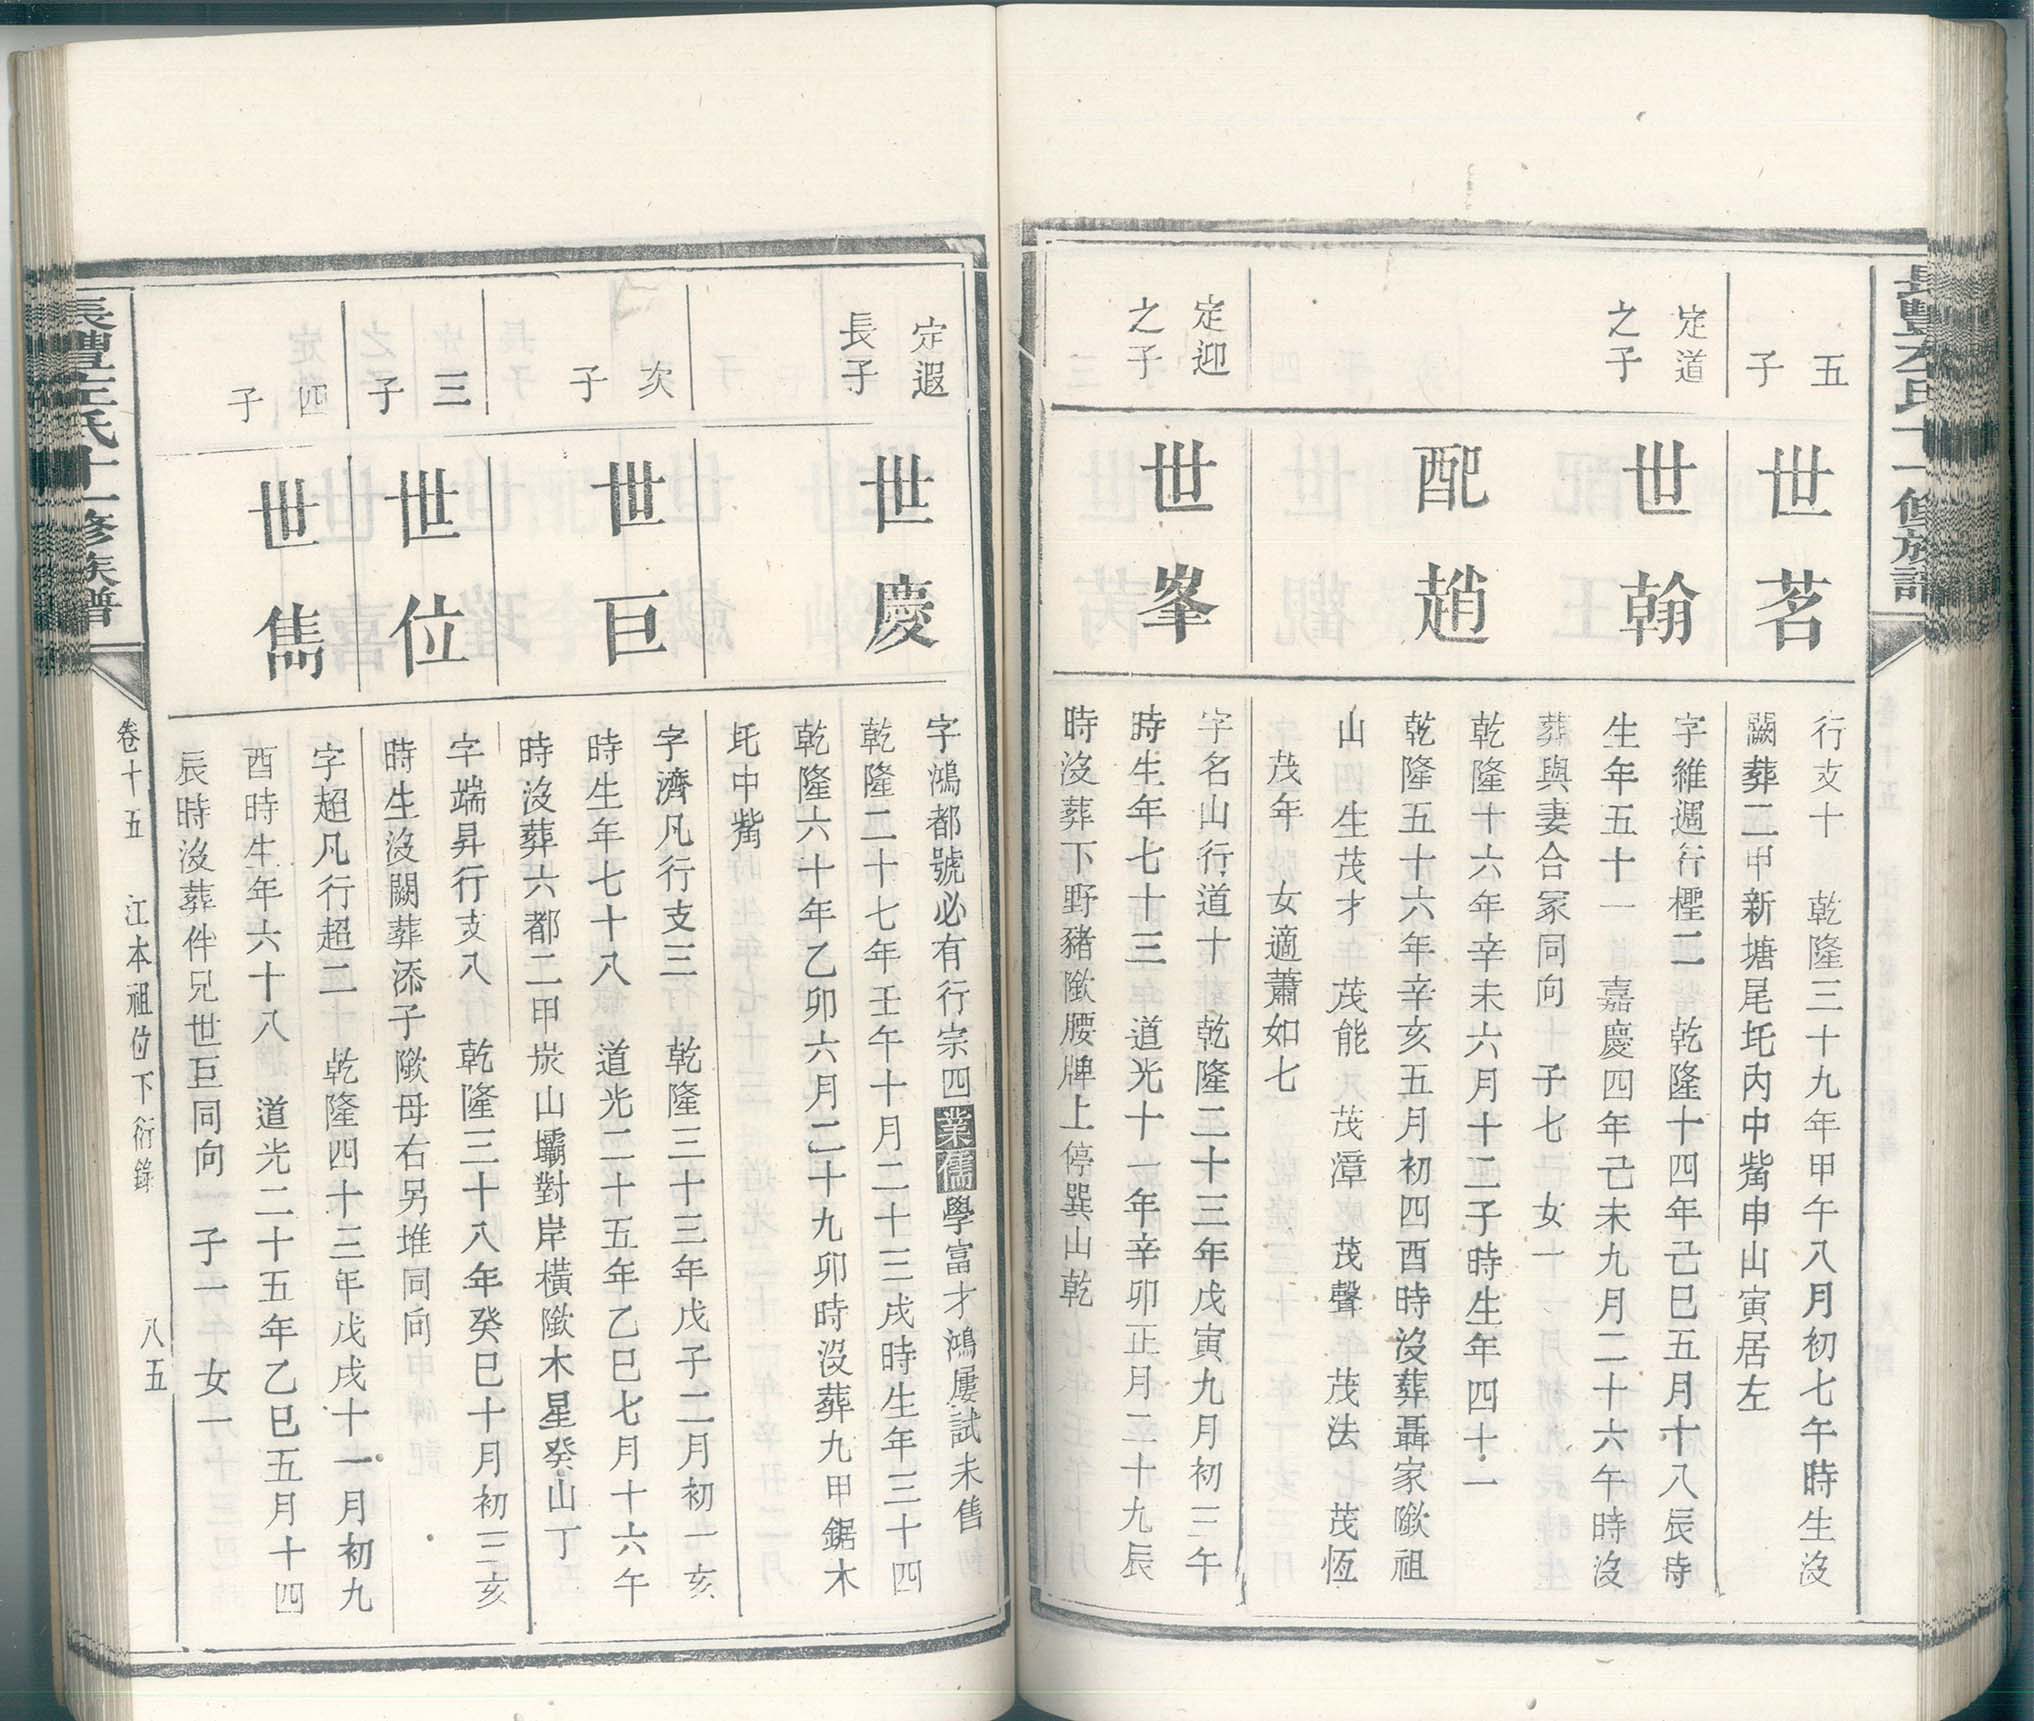 五
子
世茗
行支十　乾隆三十九年甲午八月初七午時生沒
闕葬二甲新塘尾圫內中觜申山寅居左
定道
之子
世翰
字維週行檉二　乾隆十四年己巳五月十八辰時
生年五十一　嘉慶四年己未九月二十六午時沒
葬與妻合冢同向　子七　女一
配趙
乾隆十六年辛未六月十二子時生年四十一
乾隆五十六年辛亥五月初四酉時沒葬聶家隞祖
山　生茂才　茂能　茂漳　茂聲　茂法　茂恆
茂年　女適蕭如七
定迎
之子
世峯
字名山行道十　乾隆二十三年戊寅九月初三午
時生年七十三　道光十一年辛卯正月二十九辰
時沒葬下野豬隞腰牌上停巽山乾
定遐
長子
世慶
字鴻都號必有行宗四業儒學富才鴻屢試未售
乾隆二十七年壬午十月二十三戌時生年三十四
乾隆六十年乙卯六月二十九卯時沒葬九甲鋸木
圫中觜
次
子
世巨
字濟凡行支三　乾隆三十三年戊子二月初一亥
時生年七十八　道光二十五年乙巳七月十六午
時沒葬六都二甲炭山壩對岸橫隞木星癸山丁
三
子
世位
字端昇行支八　乾隆三十八年癸巳十月初三亥
時生沒闕葬添子隞母右另堆同向
四
子
世雋
字超凡行超二　乾隆四十三年戊戌十一月初九
酉時生年六十八　道光二十五年乙巳五月十四
辰時沒葬件兄世巨同向　子一　女一
氏十一修族譜
卷十五　江本祖位下衍錄　八五